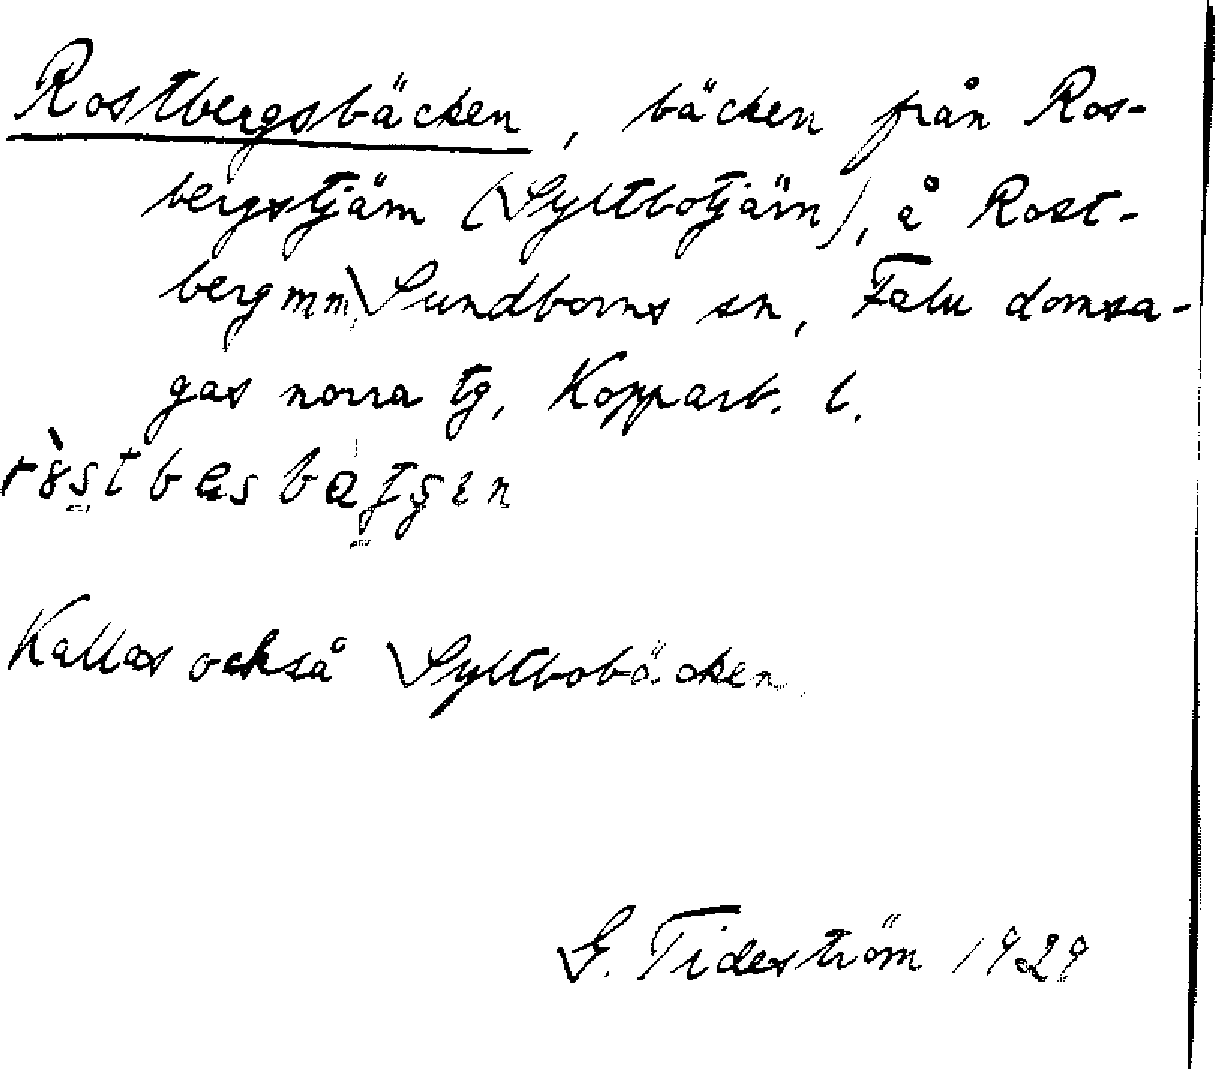 Rostbergsbäcken, bäcken från Ros-
bergstjärn (Syltbotjärn), å Rost-
berg mm, Sundborns sn, Falu domsa-
gas norra tg, Kopparb. l.
Kallas också Syltbobäcken.
G. Tideström 1929